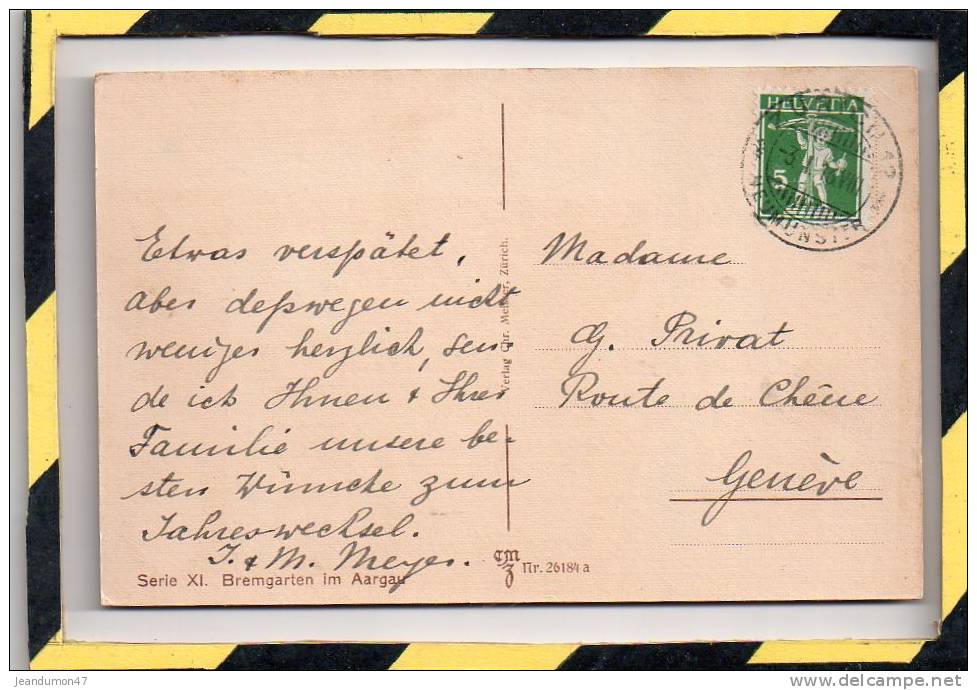 HELVETIA
5
MÜNSTER
Etwas verspätet,
aber deßwegen nicht
weniger herzlich, sen-
de ich Ihnen & Ihrer
Familie unsere be-
sten Wünsche zum
Jahreswechsel.
J. & M. Meyer.
Serie XI. Bremgarten im Aargau
Verlag Chr. Meisser, Zürich.
CMZ Nr. 26184 a
Madame
G. Privat
Route de Chêne
Genève
jeandumon47
www.delcampe.net